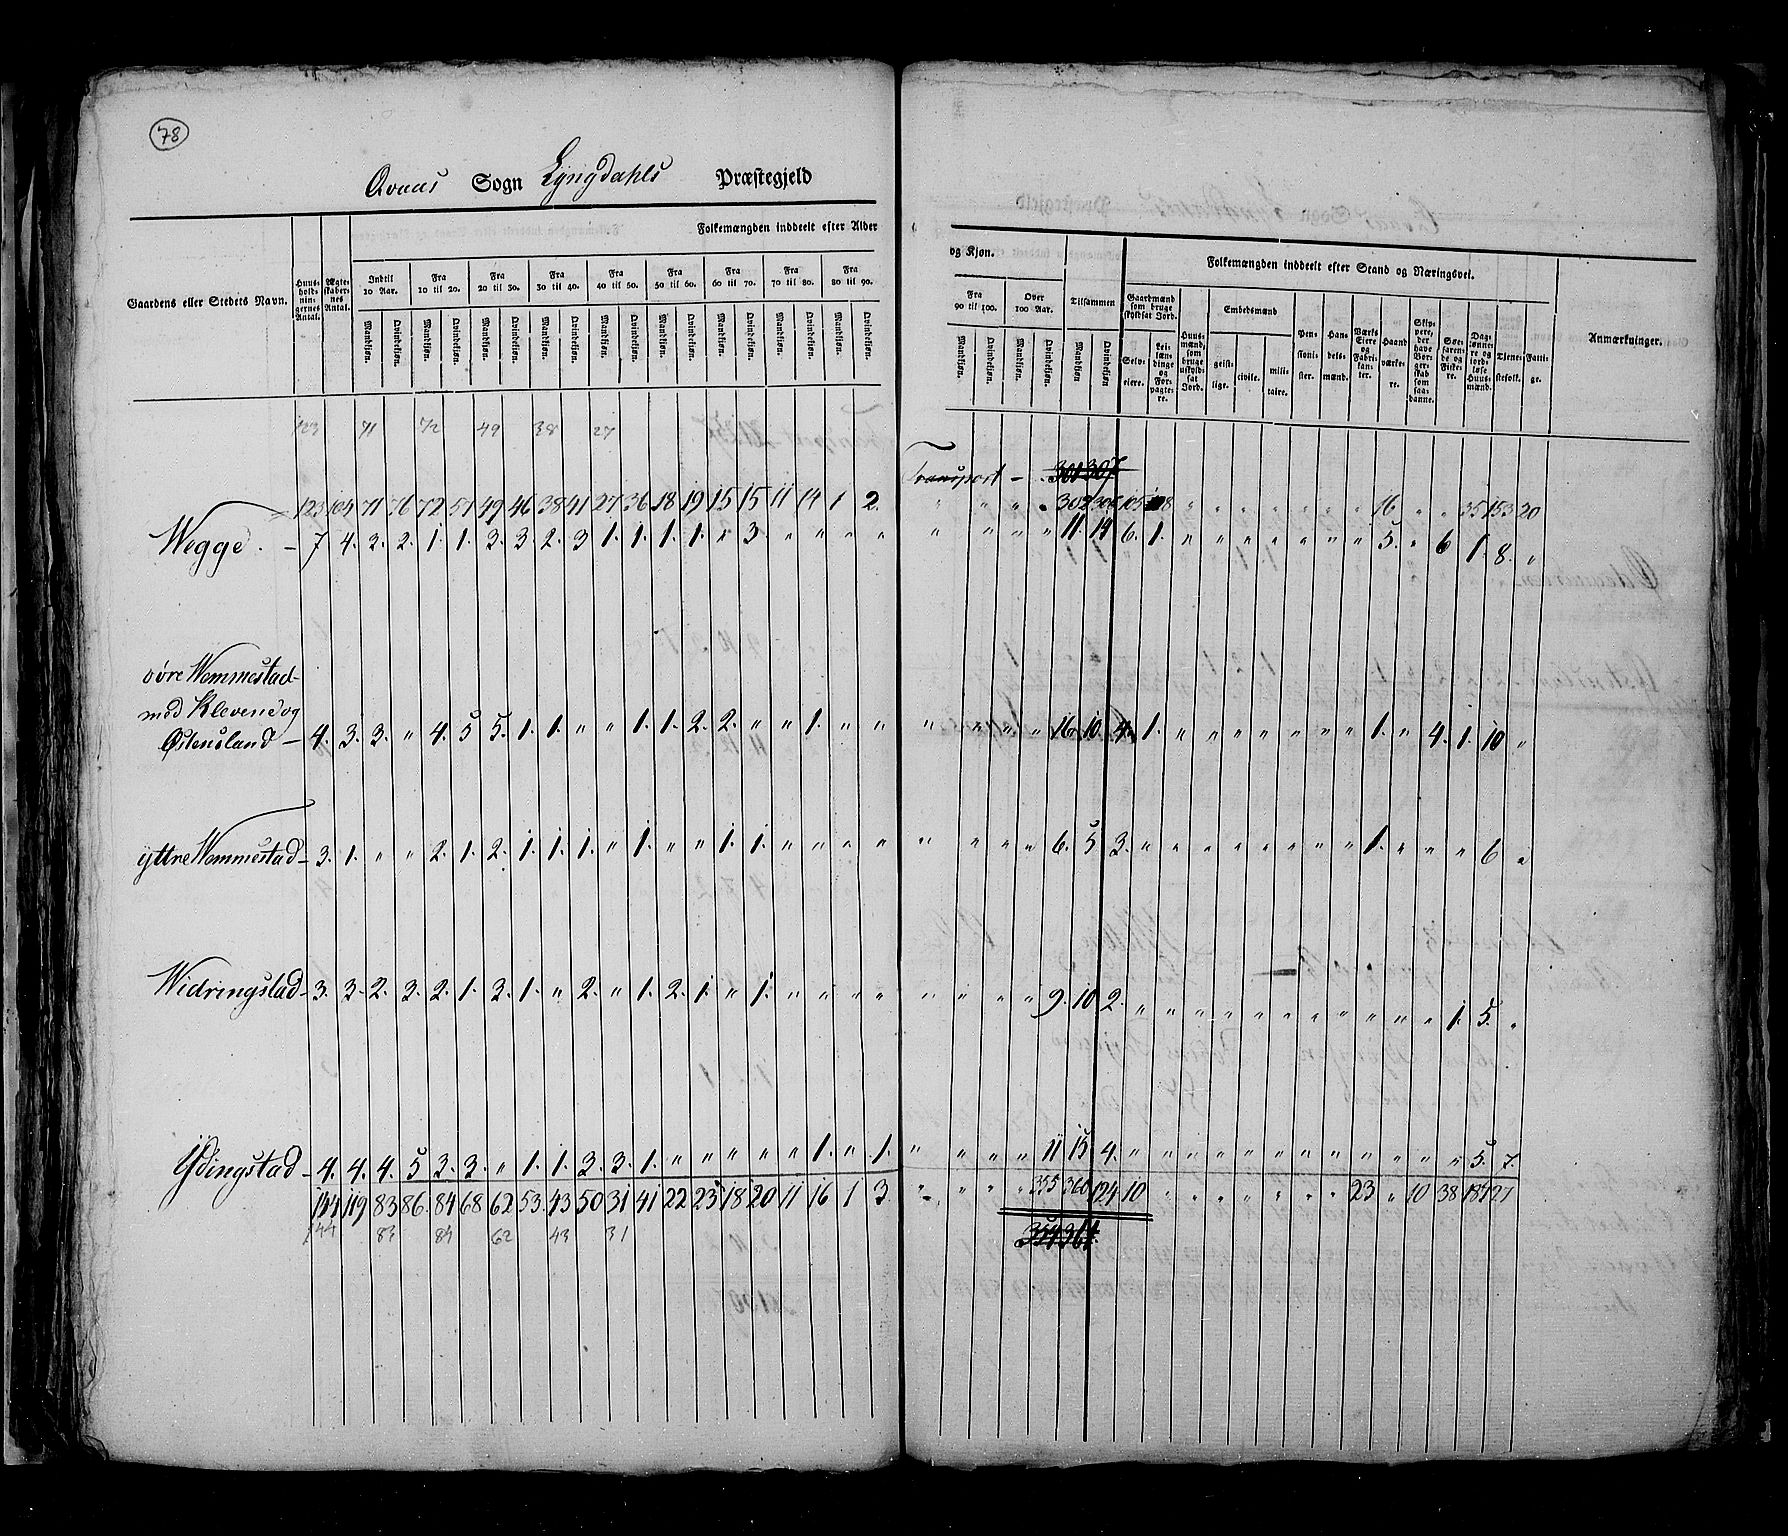 78
Qvaas Sogn Lyngdahls Præstegjeld
Gaardens eller Stedets Navn.
Huusholdningernes Antal.
Ægteskabernes Antal.
Folkemængden inddeelt efter Alder og Kjøn.
Indtil 10 Aar.
Fra 10 til 20.
Fra 20 til 30.
Fra 30 til 40.
Fra 40 til 50.
Fra 50 til 60.
Fra 60 til 70.
Fra 70 til 80.
Fra 80 til 90.
Fra 90 til 100.
Over 100 Aar.
Tilsammen
Mandkjøn. Qvindekjøn. Mandkjøn. Qvindekjøn. Mandkjøn. Qvindekjøn. Mandkjøn. Qvindekjøn. Mandkjøn. Qvindekjøn. Mandkjøn. Qvindekjøn. Mandkjøn. Qvindekjøn. Mandkjøn. Qvindekjøn. Mandkjøn. Qvindekjøn. Mandkjøn. Qvindekjøn. Mandkjøn. Qvindekjøn. Mandkjøn. Qvindekjøn
Folkemængden inddeelt efter Stand og Næringsvei.
Gaardmænd som bruge skyldsat Jord.
Selveiere.
Leilændinge og Forpagtere.
Huusmænd, som bruge uskyldsat Jord.
Embedsmænd
geistlige.
civile.
militaire.
Pensionister.
Handelsmænd.
Værks Eiere og Fabrikanter.
Haandværkere.
Skippere, der have Borgerskab som saadanne.
Søfarende og Fiskere.
Daglønnere og jordløse Huusmænd.
Tjenestefolk.
Fattige.
Anmærkninger.
123 71 72 49 38 27
Transport - 301 307
123 104 71 76 72 57 49 46 38 41 27 36 18 19 15 15 11 14 1 2. " " " " 302 306 105 8 " " " " " " " 16 " " 35 153 20
Wegge. - 7 4. 3. 2. 1. 1. 3. 3. 2. 3 1. 1. 1. 1. " 3 " " " " " " " " 11. 19 6. 1. " " " " " " " 5. " 6 1. 8. "
øvre Wemmestad
med Klevene og
Østensland - 4. 3. 3. " 4. 5 5. 1. 1. " " 1. 1. 2. 2. " " 1. " " " " " " 16 10. 4. 1. " " " " " " " 1. " 4. 1. 10 "
yttre Wemmestad - 3. 1. " " 2. 1. 2. 1. 1. 1. " 1. " " 1. 1. " " " " " " " " 6. 5 3. " " " " " " " " 1. " " " 6 "
Widringstad - 3. 3. 2. 3. 2. 1. 3. 1. " 2. " 1. 2. 1. " 1. " " " " " " " " 9. 10 2. " " " " " " " " " " " 1. 5. "
Ydingstad - 4. 4. 4. 5 3. 3. " 1. 1. 3. 3. 1. " " " " " 1. " 1. " " " " 11 15 4. " " " " " " " " " " " " 5. 7.
144 119 83 86. 84 68 62 53. 43 50 31 41 22 23 18 20 11 16 1 3 " " " " 355 360 124 10 " " " " " " " 23 " 10 38 187 27
144 83 84 62 43 31
354 361.